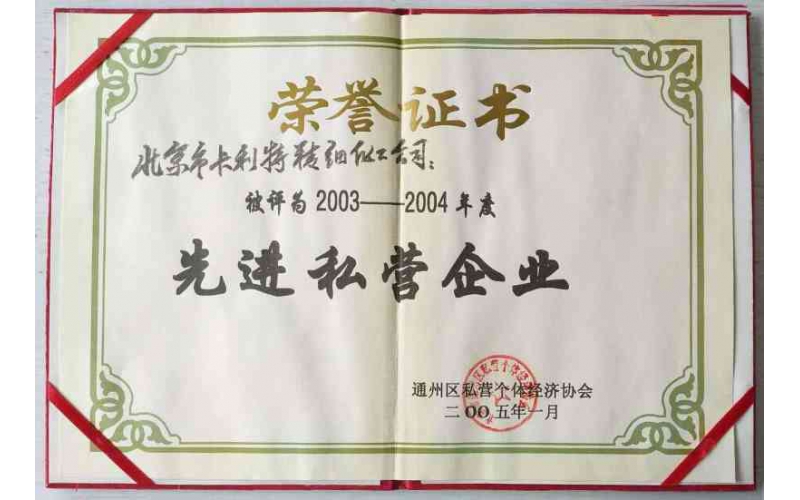 荣誉证书
北京市卡利特精细化工公司：
被评为2003——2004年度
先进私营企业
通州区私营个体经济协会
二OO五年一月